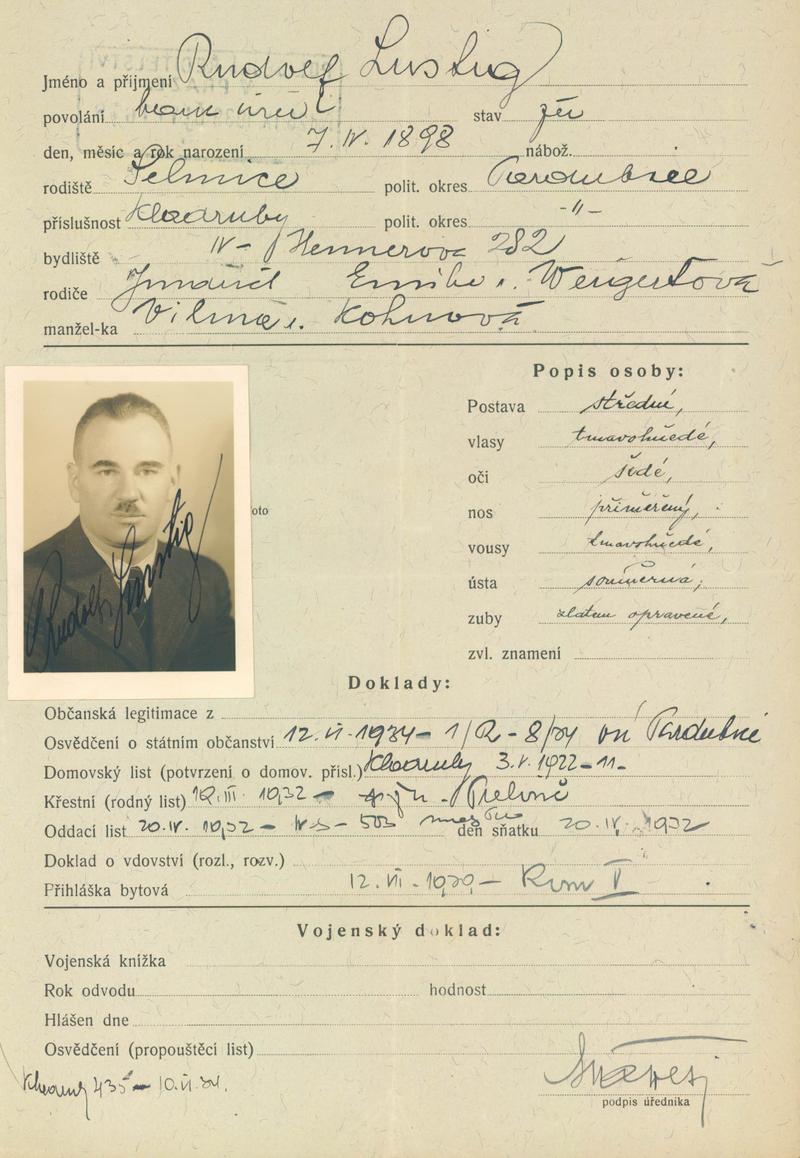 Jméno a příjmení Rudolf Lustig
povolání úřed. stav žen.
den, měsíc a rok narození 7. IV. 1898 nábož.
rodiště Selmice polit. okres Pardubice
příslušnost Kladruby polit. okres -"-
bydliště IV - Hennerova 282
rodiče Jindřich Emilie r. Weigertová
manžel-ka Vilma r. Kohnová
Popis osoby:
Postava střední,
vlasy tmavohnědé,
oči šedé,
oto
nos přiměřený,
vousy tmavohnědé,
ústa souměrná,
zuby zlatem opravené,
zvl. znamení
Rudolf Lustig
Doklady:
Občanská legitimace z
Osvědčení o státním občanství 12. VI. 1934 - 1/R - 8/34 Pardubice
Domovský list (potvrzení o domov. přísl.) Kladruby 3. V. 1922 - 11-
Křestní (rodný list) III. 1932
Oddací list 20. IV. 1932 - den sňatku 20. IV. 1932
Doklad o vdovství (rozl., rozv.)
Přihláška bytová 12. VI. 1939 - V
Vojenský doklad:
Vojenská knížka
Rok odvodu hodnost
Hlášen dne
Osvědčení (propouštěcí list)
Kladruby 435 - 10. VI. 34.
podpis úředníka